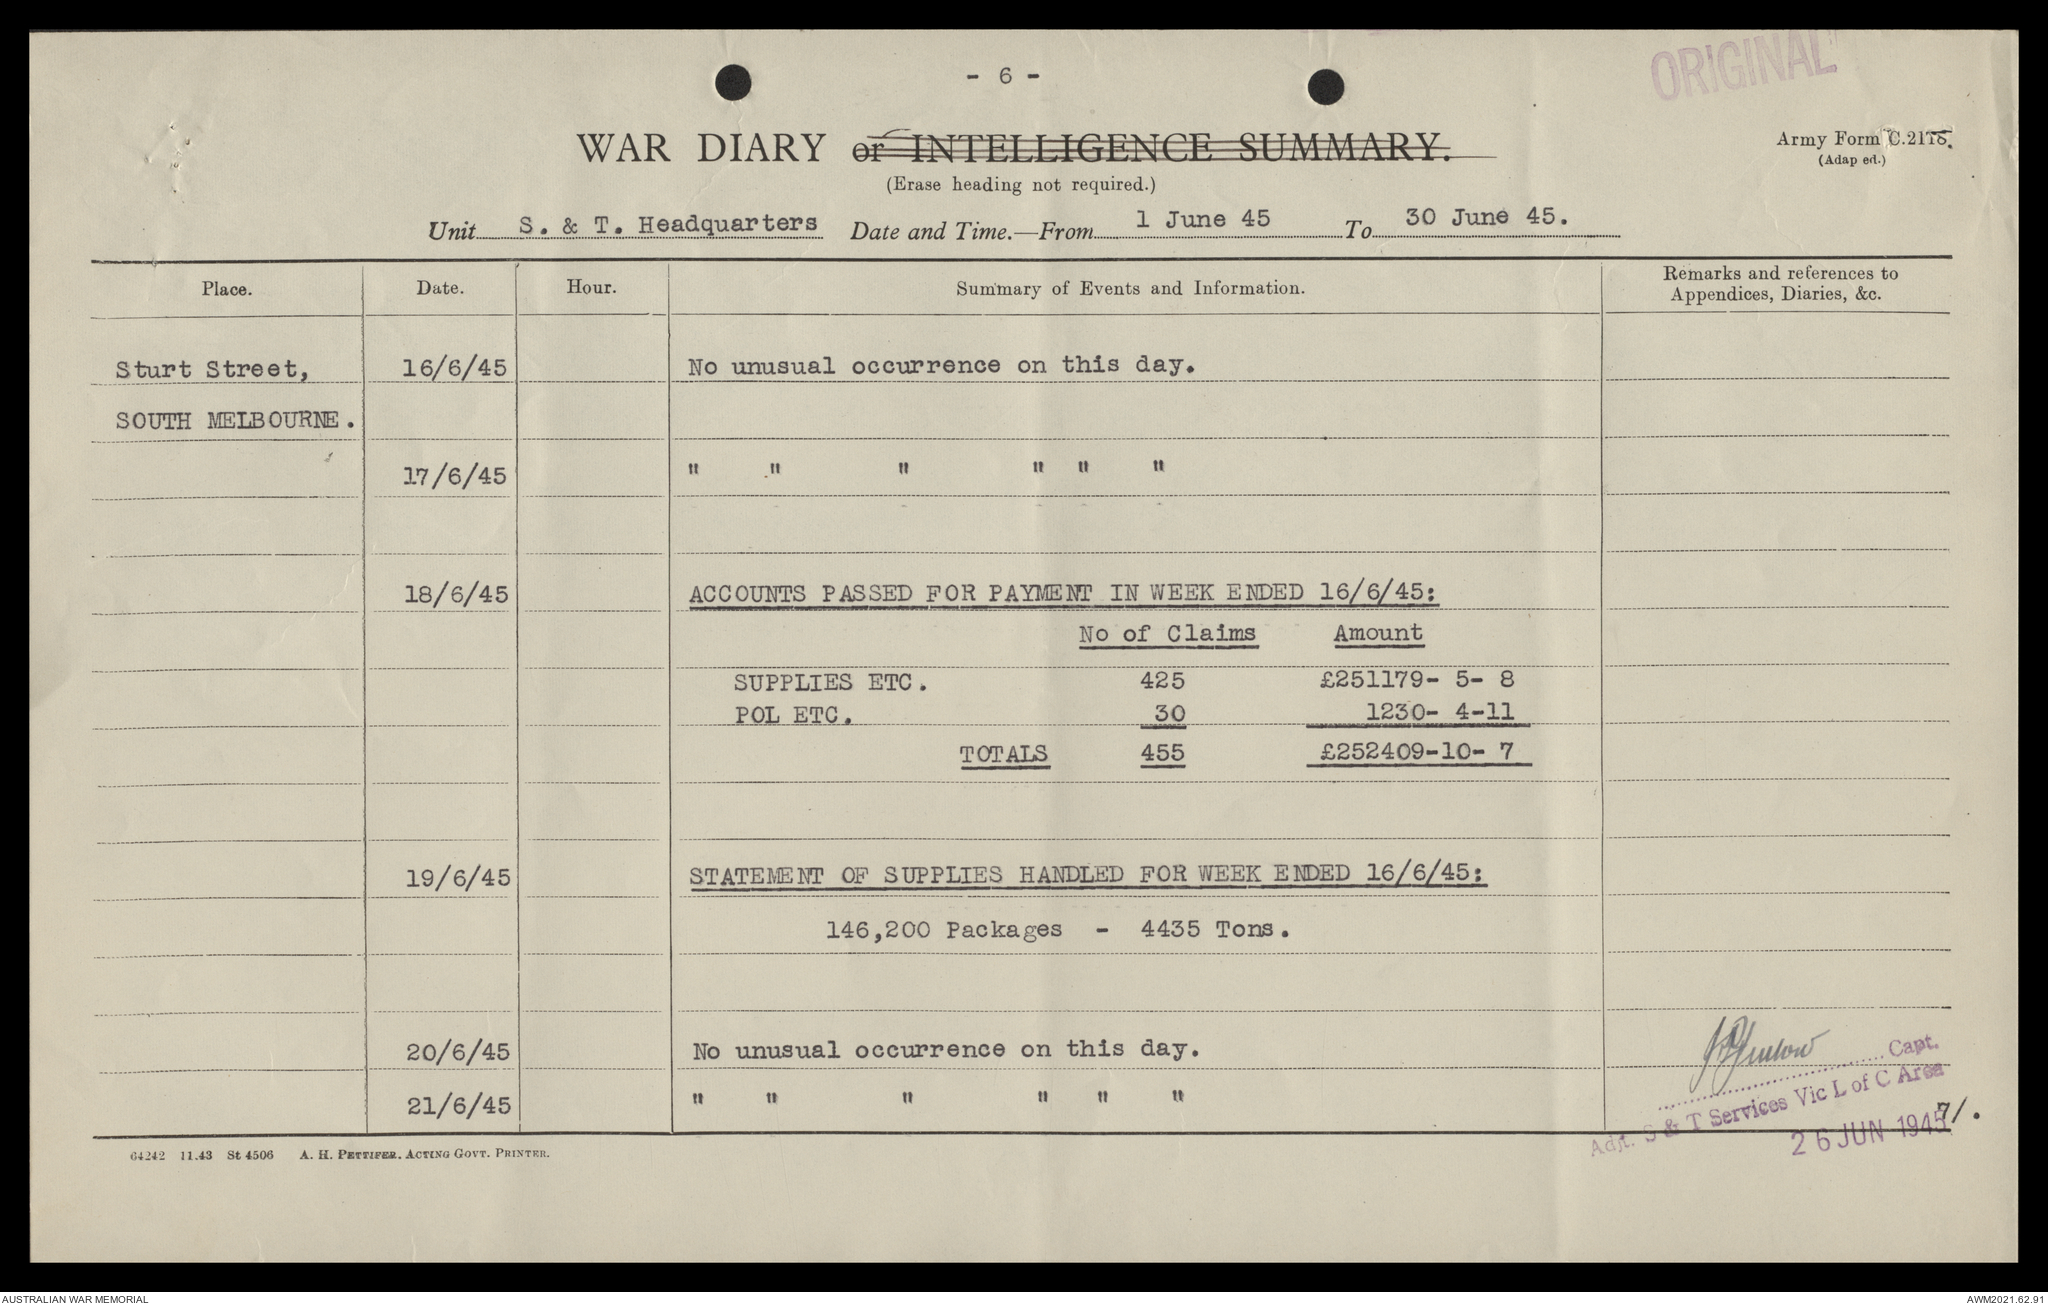 - 6 -
ORIGINAL
WAR DIARY or INTELLIGENCE SUMMARY.
Army Form C.2118.
(Adap ed.)
(Erase heading not required.)
Unit S. & T. Headquarters Date and Time.—From 1 June 45 To 30 June 45.
Place. Date. Hour. Summary of Events and Information. Remarks and references to
Appendices, Diaries, &c.
Sturt Street, 16/6/45 No unusual occurrence on this day.
SOUTH MELBOURNE.
17/6/45 " " " " " "
18/6/45 ACCOUNTS PASSED FOR PAYMENT IN WEEK ENDED 16/6/45:
No of Claims Amount
SUPPLIES ETC. 425 £251179- 5- 8
POL ETC. 30 1230- 4-11
TOTALS 455 £252409-10- 7
19/6/45 STATEMENT OF SUPPLIES HANDLED FOR WEEK ENDED 16/6/45:
146,200 Packages - 4435 Tons.
20/6/45 No unusual occurrence on this day.
21/6/45 " " " " " "
Capt.
Adjt. S & T Services Vic L of C Area
26 JUN 1945 7/.
64242 11.43 St 4506 A. H. PETTIFER, ACTING GOVT. PRINTER.
AUSTRALIAN WAR MEMORIAL AWM2021.62.91